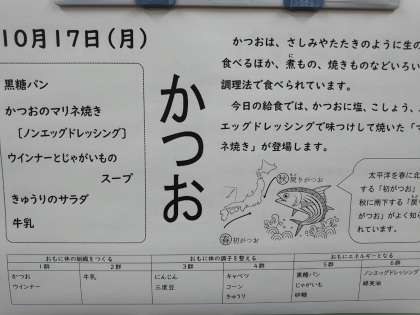 10月17日(月)
黒糖パン
かつおのマリネ焼き
[ノンエッグドレッシング]
ウインナーとじゃがいもの
スープ
きゅうりのサラダ
牛乳
かつお
かつおは、さしみやたたきのように生の
食べるほか、煮もの、焼きものなどいろい
調理法で食べられています。
今日の給食では、かつおに塩、こしょう、
エッグドレッシングで味つけして焼いた「マ
ネ焼き」が登場します。
秋 戻りがつお
春 初がつお
太平洋を春に北
する「初がつお」
秋に南下する「戻り
がつお」がよく知ら
れています。
おもに体の組織をつくる おもに体の調子を整える おもにエネルギーとなる
1群 2群 3群 4群 5群 6群
かつお 牛乳 にんじん キャベツ 黒糖パン ノンエッグドレッシング
ウインナー 三度豆 コーン じゃがいも 綿実油
きゅうり 砂糖